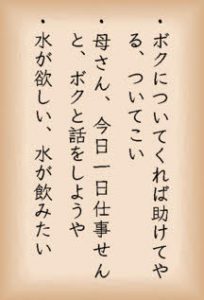 ・ボクについてくれば助けてや
る、ついてこい
・母さん、今日一日仕事せん
と、ボクと話をしようや
・水が欲しい、水が飲みたい